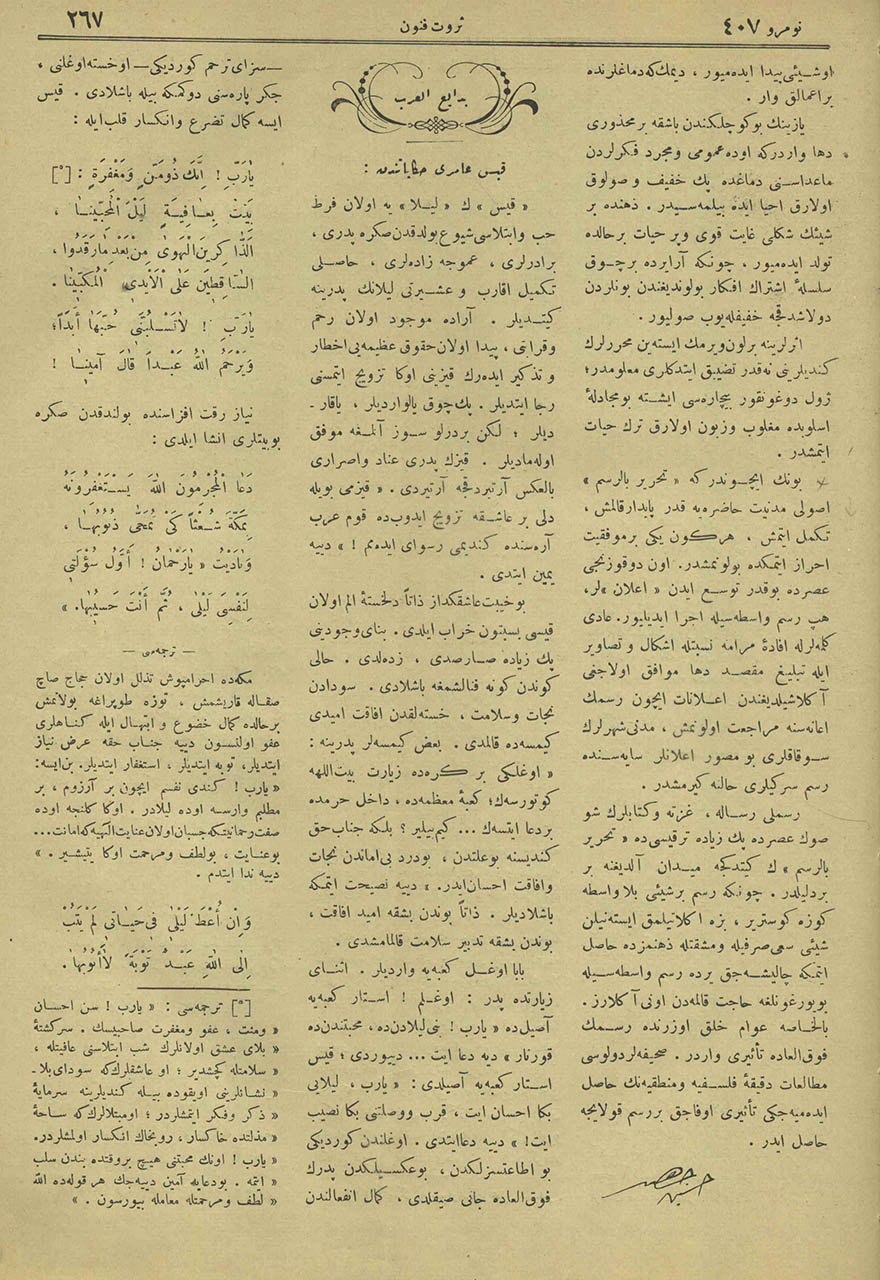 نومرو ٤٠٧
ثروت فنون
٢٦٧
اوشیئی پیدا ایده‌میور ، دیمك‌که دماغلرنده
بر اعمالق وار .
یازینك بوكوچلكندن باشقه بر محذوری
دها واردرکه اوده عمومی ومجرد فکرلردن
ماعداسنی دماغده پك خفیف و صولوق
اولارق احیا ایده بیلمه‌سیدر . ذهنده بر
شیئك شكلی غایت قوی ویر حیات برحالده
تولد ایده‌میور ، چونکه آرایرده برچوق
سلسلهٔ اشتراك افكار بولوندیغندن بونلردن
دولاشدقجه خفیفله‌یوب صولیور .
اثرلرینه برلون ویرمك ایسته‌ین محررلرك
كندیلرینی نه‌قدر تضییق ایتدكلری معلومدر؛
ژول دوغونقور بیچاره‌سی ایشته بومجادلهٔ
اسلوبده مغلوب وزبون اولارق ترك حیات
ایتمشدر .
بونك ایچوندركه « تحریر بالرسم »
اصولی مدنیت حاضره‌یه قدر پایدارقالمش ،
تكمل ایتمش ، هركون یكی برموفقیت
احراز ایتمكده بولونمشدر. اون دوقوزنجی
عصرده بوقدر توسع ایدن « اعلان »لر،
هپ رسم واسطه‌سیله اجرا ایدیلیور. عادی
كلمه‌لرله افادهٔ مرامه نسبتله اشكال و تصاویر
ایله تبلیغ مقصد دها موافق اولاجنی
آكلاشیلدیغندن اعلانات ایچون رسمك
اعانه‌سنه مراجعت اولونمش ، مدنی شهرلرك
سوقاقلری بو مصور اعلانلر سایه‌سنده
رسم سركیلری حالنه كیرمشدر .
رسملی رساله ، غزته وكتابلرك شو
صوك عصرده پك زیاده ترقیسی‌ده « تحریر
بالرسم »ك كیتدكجه میدان آلدیغنه بر
بردلیلدر . چونكه رسم برشیئی بلا واسطه
كوزه كوستریر ، بزه اكلاتیلمق ایسته‌نیلن
شیئی سعی صرفیله ومشقتله ذهنمزده حاصل
ایتمكه چالیشه‌جق یرده رسم واسطه‌سیله
بویورغونلغه حاجت قالمه‌دن اونی آكلارز .
بالخاصه عوام خلق اوزرنده رسمك
فوق‌العاده تأثیری واردر . صحیفه‌لردولوسی
مطالعات دقیقهٔ فلسفیه ومنطقیه‌نك حاصل
ایده‌میه‌جكی تأثیری اوفاجق بررسم قولایجه
حاصل ایدر .
بدایع العرب
قیس عامری حكایاتندن :
« قیس » ك « لیلا » یه اولان فرط
حب وابتلاسی شیوع بولدقدن صكره پدری ،
برادرلری ، عموجه زاده‌لری ، حاصلی
تكمیل اقارب و عشیرتی لیلانك پدرینه
كیتدیلر . آراده موجود اولان رحم
وقرابتی ، پیدا اولان حقوق عظیمه‌یی اخطار
و تذكیر ایده‌رك قیزینی اوكا تزویج ایتمسنی
رجا ایتدیلر . پك چوق یالواردیلر ، یاقار-
دیلر ؛ لكن بردرلو سوز آلمغه موفق
اوله‌مادیلر . قیزك پدری عناد واصراری
بالعكس آرتیردقجه آرتیردی . « قیزمی بویله
دلی بر عاشقه تزویج ایدوب‌ده قوم عرب
آره‌سنده كندیمی رسوای ایده‌مم ! » دییه
یمین ایتدی .
بو خیبت عاشقكداز ذاتاً دلخستهٔ الم اولان
قیسی بسبتون خراب ایلدی . بنای وجودینی
پك زیاده صارصدی ، زده‌لدی . حالی
كوندن كونه فنالشمغه باشلادی . سودادن
نجات وسلامت ، خسته‌لقدن افاقت امیدی
كیمسه‌ده قالمدی . بعض كیمسه‌لر پدرینه :
« اوغلكی بر كره‌ده زیارت بیت‌اللهه
كوتورسه‌ك؛ كعبهٔ معظمه‌ده ، داخل حرمده
بردعا ایتسه‌ك ... كیم‌بیلیر ؟ بلكه جناب حق
كندیسنه بوعلتدن ، بودرد بی‌اماندن نجات
وافاقت احسان‌ایدر. » دییه نصیحت ایتمكه
باشلادیلر . ذاتاً بوندن بشقه امید افاقت ،
بوندن بشقه تدبیر سلامت قالمامشدی .
بابا اوغل كعبه‌یه واردیلر . اثنای
زیارتده پدر : اوغلم ! استار كعبه‌یه
آصیل‌ده « یارب ! بنی لیلادن‌ده ، محبتندن‌ده
قورتار » دیه دعا ایت ... دییوردی ؛ قیس
استار كعبه‌یه آصیلدی : « یارب ، لیلایی
بكا احسان ایت ، قرب ووصلتنی بكا نصیب
ایت! » دییه دعاایتدی . اوغلندن كوردیكی
بو اطاعتسزلكدن ، بوعكسیلكدن پدرك
فوق‌العاده جانی صیقلدی ، كمال انفعالندن
—سزای ترحم كوردیكی— اوخسته اوغلنی ،
جكر پاره‌سنی دوكمكه بیله باشلادی . قیس
ایسه كمال تضرع وانكسار قلب ایله :
یَارَبِّ ! اِنَّكَ ذُومَنٍّ وَمَغْفِرَةٍ : [*]
بَیِّتْ بِعَافِیَةٍ لَیْلَ الْمُحِبِّینَا ،
اَلذَّاكِرِینَ الْهَوٰی مِنْ بَعْدِ مَارَقَدُوا ،
السَّاقِطِینَ عَلَی الْاَیْدِی الْمُكِبِّینَا .
یَارَبِّ ! لَاتَسْلُبَنِّی حُبَّهَا أَبَداً؛
وَیَرْحَمُ اللهُ عَبْداً قَالَ آمِینَا !
نیاز رقت افزاسنده بولندقدن صكره
بوبیتلری انشا ایلدی :
دَعَا الْمُجْرِمُونَ اللهَ یَسْتَغْفِرُونَهُ
بِمَكَّةَ شُعْثاً كَیْ تُمَحّٰی ذُنُوبُهَا ،
وَنَادَیْتُ « یَارَحْمَانُ ! أَوَّلُ سُؤْلَتِی
لِنَفْسِیَ لَیْلٰی ، ثُمَّ أَنْتَ حَسِیبُهَا. »
— ترجمه‌سی —
مكه‌ده احرامپوش تذلل اولان حجاج صاچ
صقاله قاریشمش ، توزه طوپراغه بولانمش
برحالده كمال خضوع و ابتهال ایله كناهلری
عفو اولنسون دییه جناب حقه عرض نیاز
ایتدیلر، توبه ایتدیلر ، استغفار ایتدیلر. بن‌ایسه:
« یارب ! كندی نفسم ایچون بر آرزوم ، بر
مطلبم وارسه اوده لیلادر . اوكا كالنجه اوده
صفت رحمانیتكه چسبان اولان عنایت الٰهیه‌كه امانت...
بوعنایت ، بولطف ومرحمت اوكا یتیشیر . »
دییه ندا ایتدم .
وَاِنْ أُعْطَ لَیْلٰی فِی حَیَاتِی لَمْ یَتُبْ
اِلَی اللهِ عَبْدٌ تَوْبَةً لَاأَتُوبُهَا .
[*] ترجمه‌سی : « یارب ! سن احسان
« ومنت ، عفو ومغفرت صاحبیسك . سركشتهٔ
« بلای عشق اولانلرك شب ابتلاسنی عافیتله ،
« سلامتله كچشدیر ؛ او عاشقلرك‌كه سودای بلا-
« نشانلرینی اویقوده بیله كندیلرینه سرمایهٔ
« ذكر وفكر ایتمشلردر ؛ اومبتلالرك‌كه ساحهٔ
« مذلتده خاكسار ، رویخاك انكسار اولمشلردر.
« یارب ! اونك محبتنی هیچ بروقتده بندن سلب
« ایتمه . بودعایه آمین دییه‌جك هر قوله‌ده الله
« لطف ومرحمتله معامله بیورسون . »